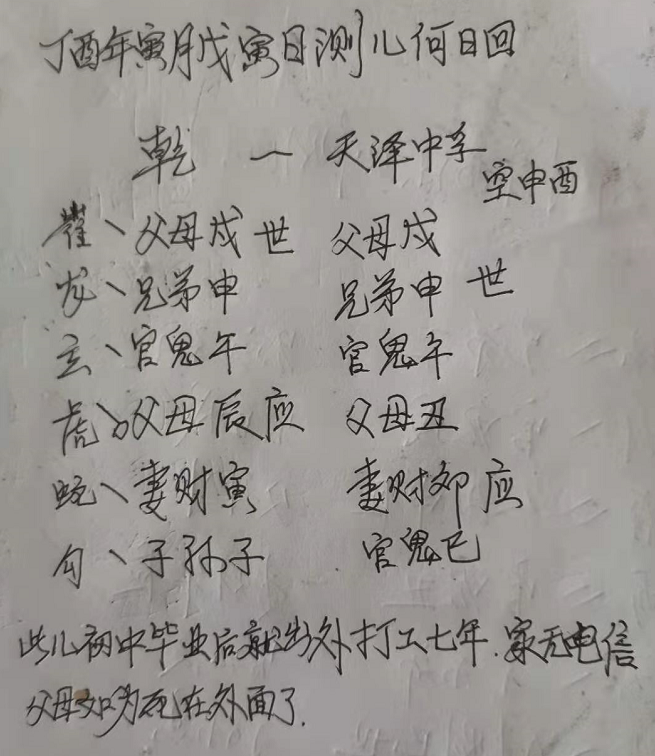 丁酉年寅月戊寅日测儿何日回
乾 一 天泽中孚
空申酉
雀、父母戌 世 父母戌
龙、兄弟申 兄弟申 世
玄、官鬼午 官鬼午
虎 父母辰 应 父母丑
蛇、妻财寅 妻财卯 应
勾、子孙子 官鬼巳
此儿初中毕业后就出外打工七年.家无电信
父母如为死在外面了.